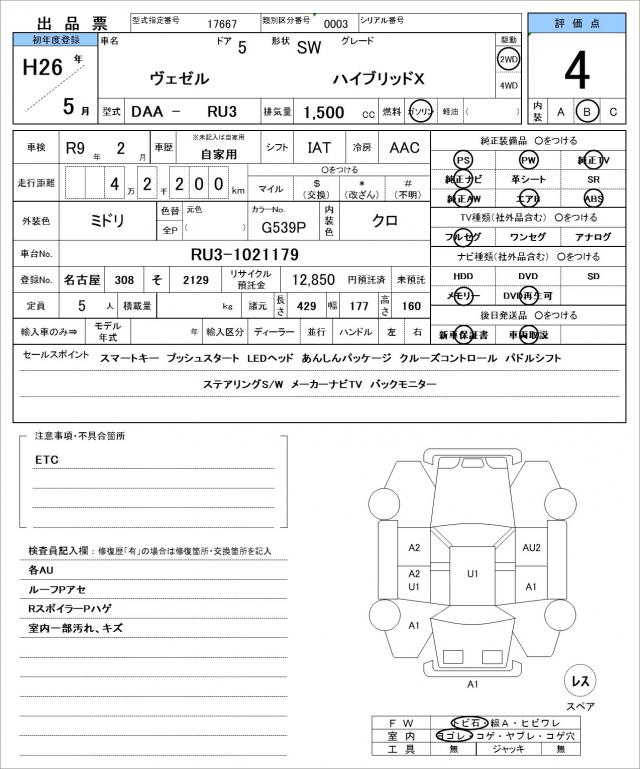 出品票 型式指定番号 17667 類別区分番号 0003 シリアル番号
評価点
4
初年度登録 車名 ドア 5 形状 SW グレード 駆動
H26 年 5 月
ヴェゼル ハイブリッドX
2WD
4WD
型式 DAA － RU3 排気量 1,500 cc 燃料 ガソリン 軽油 ( )
内装 A B C
車検 R9 年 2 月 車歴 ※未記入は自家用 自家用 シフト IAT 冷房 AAC
走行距離 4 万 2 千 2 0 0 km 〇をつける マイル $ (交換) * (改ざん) # (不明)
外装色 ミドリ 色替 全P 元色 ( ) カラーNo. G539P 内装色 クロ
車台No. RU3-1021179
登録No. 名古屋 308 そ 2129 リサイクル預託金 12,850 円預託済 未預託
定員 5 人 積載量 kg 諸元 長さ 429 幅 177 高さ 160
輸入車のみ⇒ モデル年式 年 輸入区分 ディーラー 並行 ハンドル 左 右
純正装備品 〇をつける
PS PW 純正TV
純正ナビ 革シート SR
純正AW エアB ABS
TV種類(社外品含む) 〇をつける
フルセグ ワンセグ アナログ
ナビ種類(社外品含む) 〇をつける
HDD DVD SD
メモリー DVD再生可
後日発送品 〇をつける
新車保証書 車両取説
セールスポイント スマートキー プッシュスタート LEDヘッド あんしんパッケージ クルーズコントロール パドルシフト
ステアリングS/W メーカーナビTV バックモニター
注意事項・不具合箇所
ETC
検査員記入欄：修復歴「有」の場合は修復箇所・交換箇所を記入
各AU
ルーフPアセ
RスポイラーPハゲ
室内一部汚れ、キズ
A2 AU2
A2 U1 U1 A1
A1
A1
レス
スペア
FW トビ石・線A・ヒビワレ
室内 ヨゴレ・コゲ・ヤブレ・コゲ穴
工具 無 ジャッキ 無